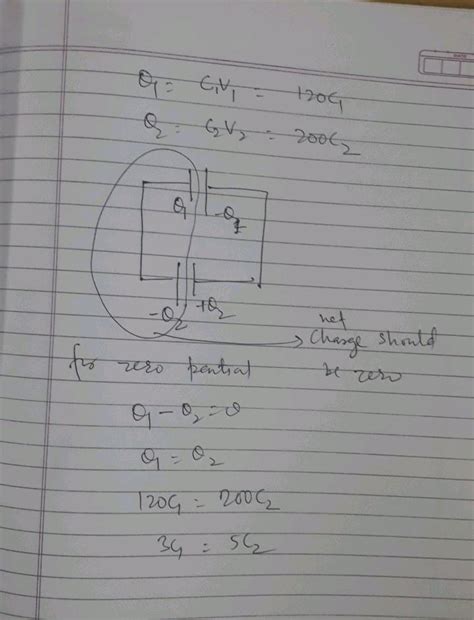 Q₁ = C₁V₁ = 120C₁
Q₂ = C₂V₂ = 200C₂
Q₁ -Q₁
-Q₂ +Q₂
net
charge should
for zero pential be zero
Q₁ - Q₂ = 0
Q₁ = Q₂
120C₁ = 200C₂
3C₁ = 5C₂